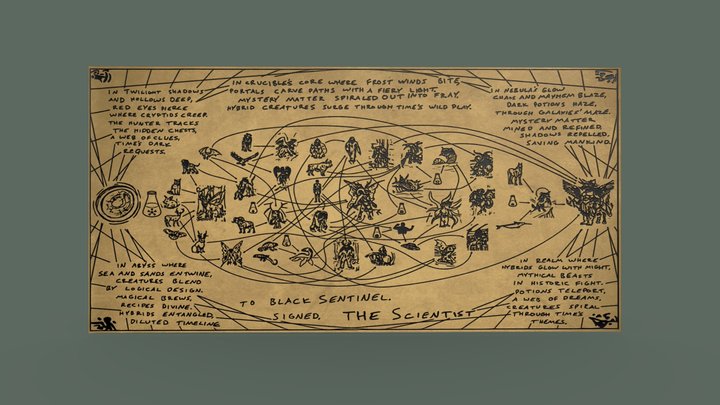 IN TWILIGHT SHADOWS
AND HOLLOWS DEEP,
RED EYES PIERCE
WHERE CRYPTIDS CREEP.
THE HUNTER TRACKS
THE HIDDEN CHESTS,
A WEB OF CLUES,
TIME'S DARK
REQUESTS.
IN CRUCIBLE'S CORE WHERE FROST WINDS BITE,
PORTALS CARVE PATHS WITH A FIERY LIGHT,
MYSTERY MATTER SPIRALED OUT INTO FRAY,
HYBRID CREATURES SURGE THROUGH TIME'S WILD PLAY.
IN NEBULA'S GLOW
CHAOS AND MAYHEM BLAZE,
DARK POTIONS HAZE,
THROUGH GALAXIES' MAZE.
MYSTERY MATTER
MINED AND REFINED,
SHADOWS REPELLED,
SAVING MANKIND.
IN ABYSS WHERE
SEA AND SANDS ENTWINE,
CREATURES BLEND
BY LOGICAL DESIGN.
MAGICAL BREWS,
RECIPES DIVINE.
HYBRIDS ENTANGLED,
DILUTED TIMELINE
TO BLACK SENTINEL.
SIGNED, THE SCIENTIST
IN REALM WHERE
HYBRIDS GLOW WITH MIGHT,
MYTHICAL BEASTS
IN HISTORIC FIGHT.
POTIONS TELEPORT,
A WEB OF DREAMS,
CREATURES SPIRAL
THROUGH TIME'S
THEMES.